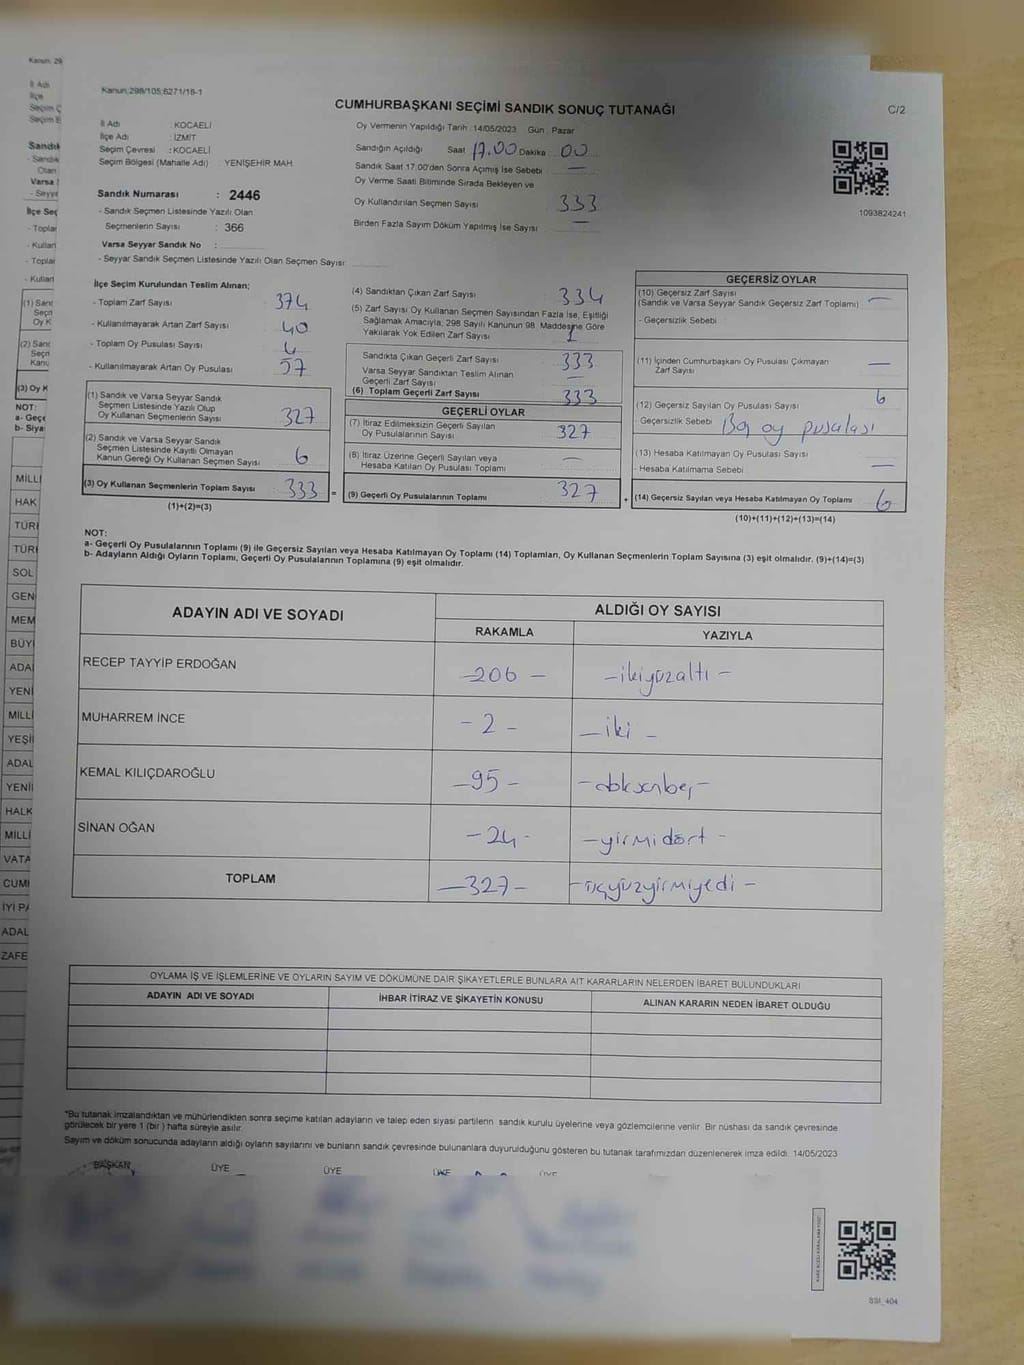 Kanun;298/105;6271/18-1
CUMHURBAŞKANI SEÇİMİ SANDIK SONUÇ TUTANAĞI
C/2
İl Adı : KOCAELİ
İlçe Adı : İZMİT
Seçim Çevresi : KOCAELİ
Seçim Bölgesi (Mahalle Adı) : YENİŞEHİR MAH.
Sandık Numarası : 2446
- Sandık Seçmen Listesinde Yazılı Olan
Seçmenlerin Sayısı : 366
Varsa Seyyar Sandık No :
- Seyyar Sandık Seçmen Listesinde Yazılı Olan Seçmen Sayısı:
Oy Vermenin Yapıldığı Tarih : 14/05/2023 Gün : Pazar
Sandığın Açıldığı Saat 17.00 Dakika 00
Sandık Saat 17:00'den Sonra Açımış İse Sebebi —
Oy Verme Saati Bitiminde Sırada Bekleyen ve
Oy Kullandırılan Seçmen Sayısı 333
Birden Fazla Sayım Döküm Yapılmış İse Sayısı —
1093824241
İlçe Seçim Kurulundan Teslim Alınan;
- Toplam Zarf Sayısı 374
- Kullanılmayarak Artan Zarf Sayısı 40
- Toplam Oy Pusulası Sayısı
- Kullanılmayarak Artan Oy Pusulası 57
(1) Sandık ve Varsa Seyyar Sandık
Seçmen Listesinde Yazılı Olup
Oy Kullanan Seçmenlerin Sayısı 327
(2) Sandık ve Varsa Seyyar Sandık
Seçmen Listesinde Kayıtlı Olmayan
Kanun Gereği Oy Kullanan Seçmen Sayısı 6
(3) Oy Kullanan Seçmenlerin Toplam Sayısı 333 =
(1)+(2)=(3)
(4) Sandıktan Çıkan Zarf Sayısı 334
(5) Zarf Sayısı Oy Kullanan Seçmen Sayısından Fazla İse, Eşitliği
Sağlamak Amacıyla; 298 Sayılı Kanunun 98. Maddesine Göre
Yakılarak Yok Edilen Zarf Sayısı 1
Sandıkta Çıkan Geçerli Zarf Sayısı 333
Varsa Seyyar Sandıktan Teslim Alınan
Geçerli Zarf Sayısı —
(6) Toplam Geçerli Zarf Sayısı 333
GEÇERLİ OYLAR
(7) İtiraz Edilmeksizin Geçerli Sayılan
Oy Pusulalarının Sayısı 327
(8) İtiraz Üzerine Geçerli Sayılan veya
Hesaba Katılan Oy Pusulası Toplamı —
(9) Geçerli Oy Pusulalarının Toplamı 327 +
GEÇERSİZ OYLAR
(10) Geçersiz Zarf Sayısı
(Sandık ve Varsa Seyyar Sandık Geçersiz Zarf Toplamı) —
- Geçersizlik Sebebi :
(11) İçinden Cumhurbaşkanı Oy Pusulası Çıkmayan
Zarf Sayısı —
(12) Geçersiz Sayılan Oy Pusulası Sayısı 6
- Geçersizlik Sebebi Boş oy pusulası
(13) Hesaba Katılmayan Oy Pusulası Sayısı
- Hesaba Katılmama Sebebi —
(14) Geçersiz Sayılan veya Hesaba Katılmayan Oy Toplamı 6
(10)+(11)+(12)+(13)=(14)
NOT:
a- Geçerli Oy Pusulalarının Toplamı (9) ile Geçersiz Sayılan veya Hesaba Katılmayan Oy Toplamı (14) Toplamları, Oy Kullanan Seçmenlerin Toplam Sayısına (3) eşit olmalıdır. (9)+(14)=(3)
b- Adayların Aldığı Oyların Toplamı, Geçerli Oy Pusulalarının Toplamına (9) eşit olmalıdır.
ADAYIN ADI VE SOYADI ALDIĞI OY SAYISI
RAKAMLA YAZIYLA
RECEP TAYYİP ERDOĞAN -206- -ikiyüzaltı-
MUHARREM İNCE -2- -iki-
KEMAL KILIÇDAROĞLU -95- -doksanbeş-
SİNAN OĞAN -24- -yirmidört-
TOPLAM -327- -üçyüzyirmiyedi-
OYLAMA İŞ VE İŞLEMLERİNE VE OYLARIN SAYIM VE DÖKÜMÜNE DAİR ŞİKAYETLERLE BUNLARA AİT KARARLARIN NELERDEN İBARET BULUNDUKLARI
ADAYIN ADI VE SOYADI İHBAR İTİRAZ VE ŞİKAYETİN KONUSU ALINAN KARARIN NEDEN İBARET OLDUĞU
*Bu tutanak imzalandıktan ve mühürlendikten sonra seçime katılan adayların ve talep eden siyasi partilerin sandık kurulu üyelerine veya gözlemcilerine verilir. Bir nüshası da sandık çevresinde
görülecek bir yere 1 (bir) hafta süreyle asılır.
Sayım ve döküm sonucunda adayların aldığı oyların sayılarını ve bunların sandık çevresinde bulunanlara duyurulduğunu gösteren bu tutanak tarafımızdan düzenlenerek imza edildi. 14/05/2023
BAŞKAN ÜYE ÜYE ÜYE ÜYE
SSI_404